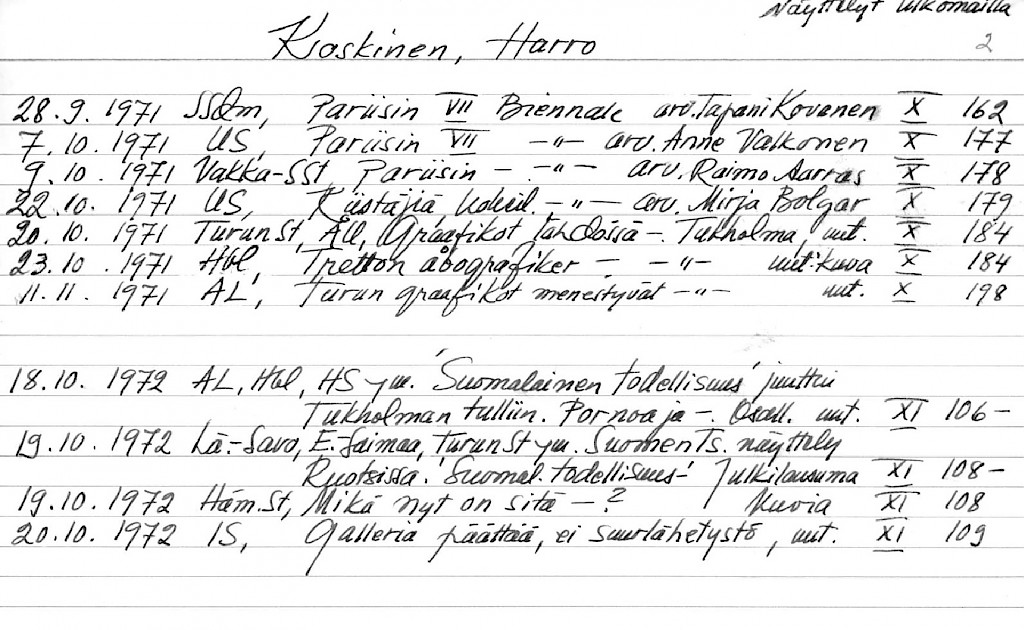 Näyttelyt ulkomailla
2
Koskinen, Harro
28.9. 1971 SSdm, Pariisin VII Biennale arv. Tapani Kovanen X 162
7.10. 1971 US, Pariisin VII -"- arv. Anne Valkonen X 177
9.10. 1971 Vakka-SSt, Pariisin - -"- arv. Raimo Aarras X 178
22.10. 1971 US, Kiistäjiä, kokeil. -"- arv. Mirja Bolgar X 179
20.10. 1971 TurunSt, ÅU, Graafikot Tukholma, uut. X 184
23.10. 1971 Hbl, Tretton åbografiker - -"- uut. kuva X 184
11.11. 1971 AL, Turun graafikot menestyvät -"- uut. X 198
18.10. 1972 AL, Hbl, HS ym. 'Suomalainen todellisuus' juuttui
Tukholman tulliin. Pornoa ja -. Osall. uut. XI 106-
19.10. 1972 Lä.-Savo, E.-Saimaa, TurunSt ym. SuomenTs. näyttely
Ruotsissa. 'Suomal. todellisuus' Julkilausuma XI 108-
19.10. 1972 Häm.St, Mikä nyt on sitä -? Kuvia XI 108
20.10. 1972 IS, Galleria päättää, ei suurlähetystö, uut. XI 109